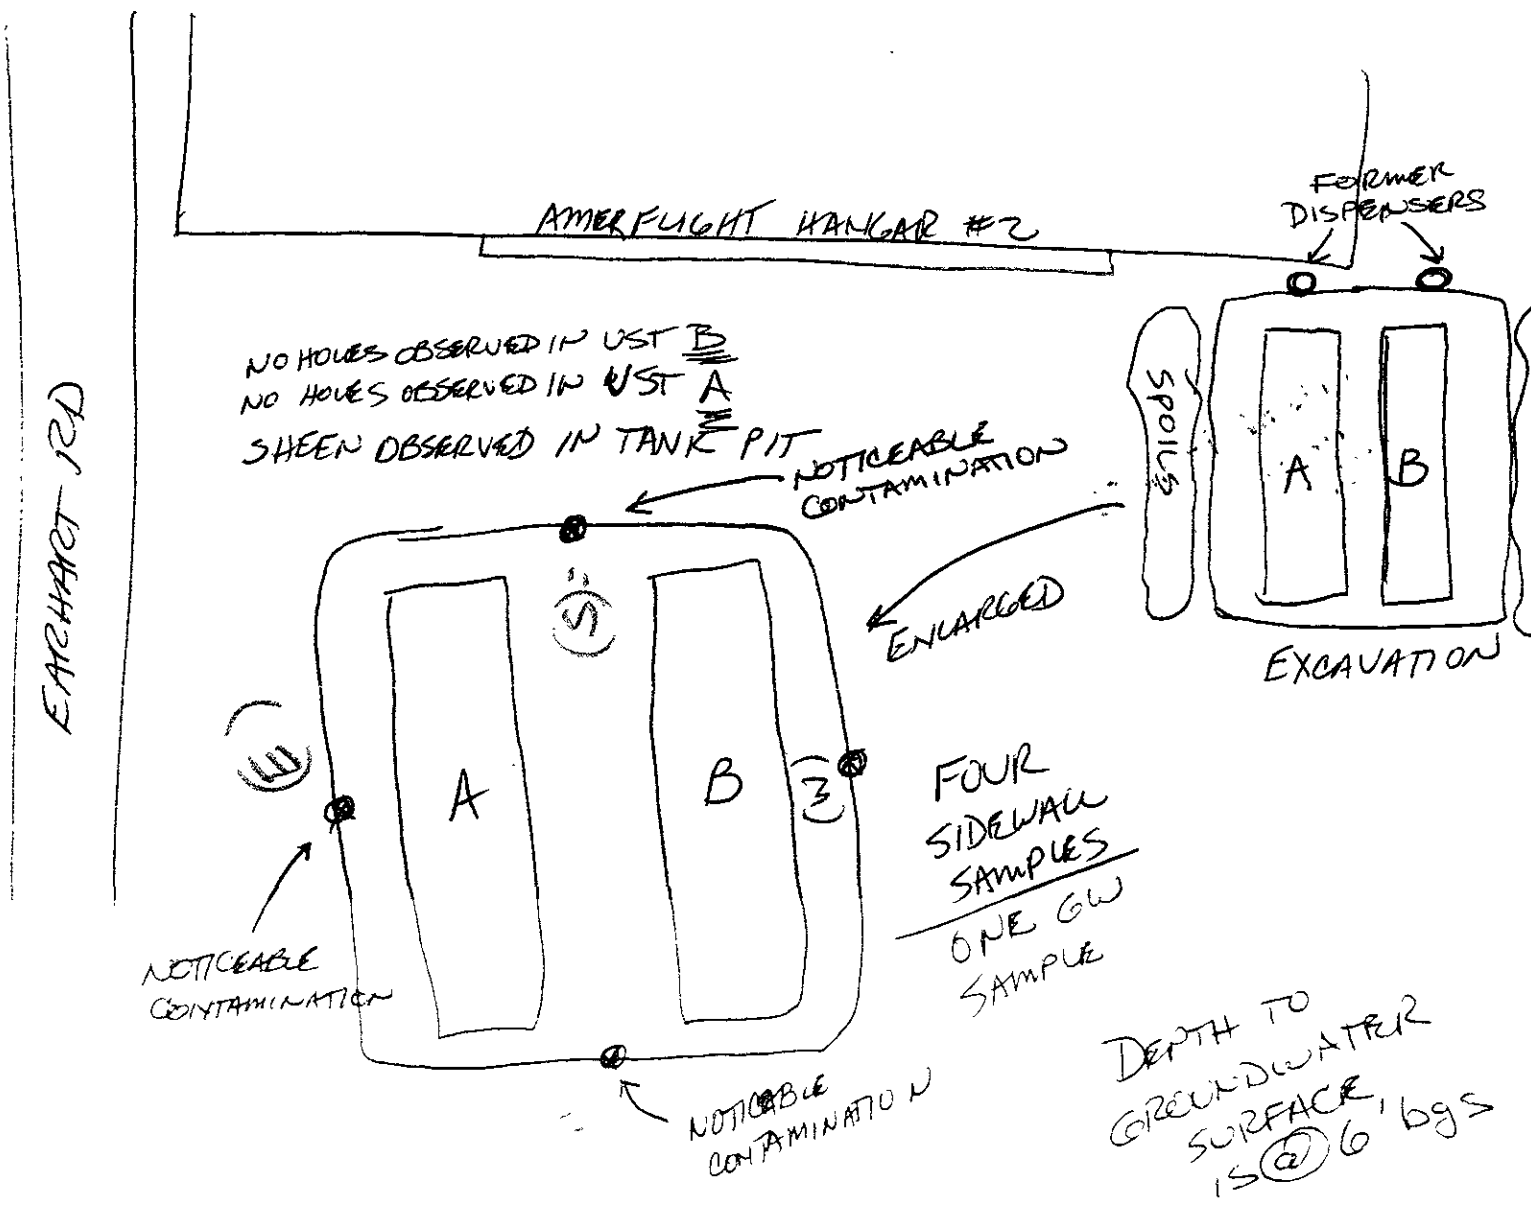 FORMER
DISPENSERS
AMERFLIGHT HANGAR #2
NO HOLES OBSERVED IN UST B
NO HOLES OBSERVED IN UST A
SHEEN OBSERVED IN TANK PIT
NOTICEABLE
CONTAMINATION
SPOILS
A
B
EXCAVATION
ENLARGED
EARHART RD
(S)
(E)
A
B
(W)
FOUR
SIDEWALL
SAMPLES
ONE GW
SAMPLE
NOTICEABLE
CONTAMINATION
NOTICABLE
CONTAMINATION
DEPTH TO
GROUNDWATER
SURFACE
IS @ 6' bgs